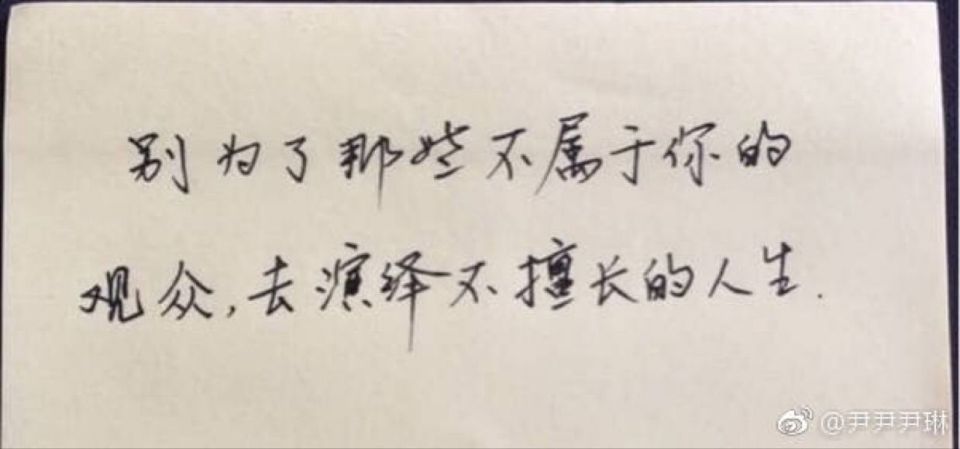 别为了那些不属于你的
观众,去演绎不擅长的人生.
@尹尹尹琳